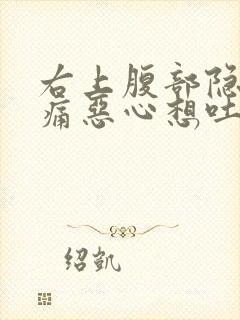 右上腹部隐
痛恶心想吐
绍凯